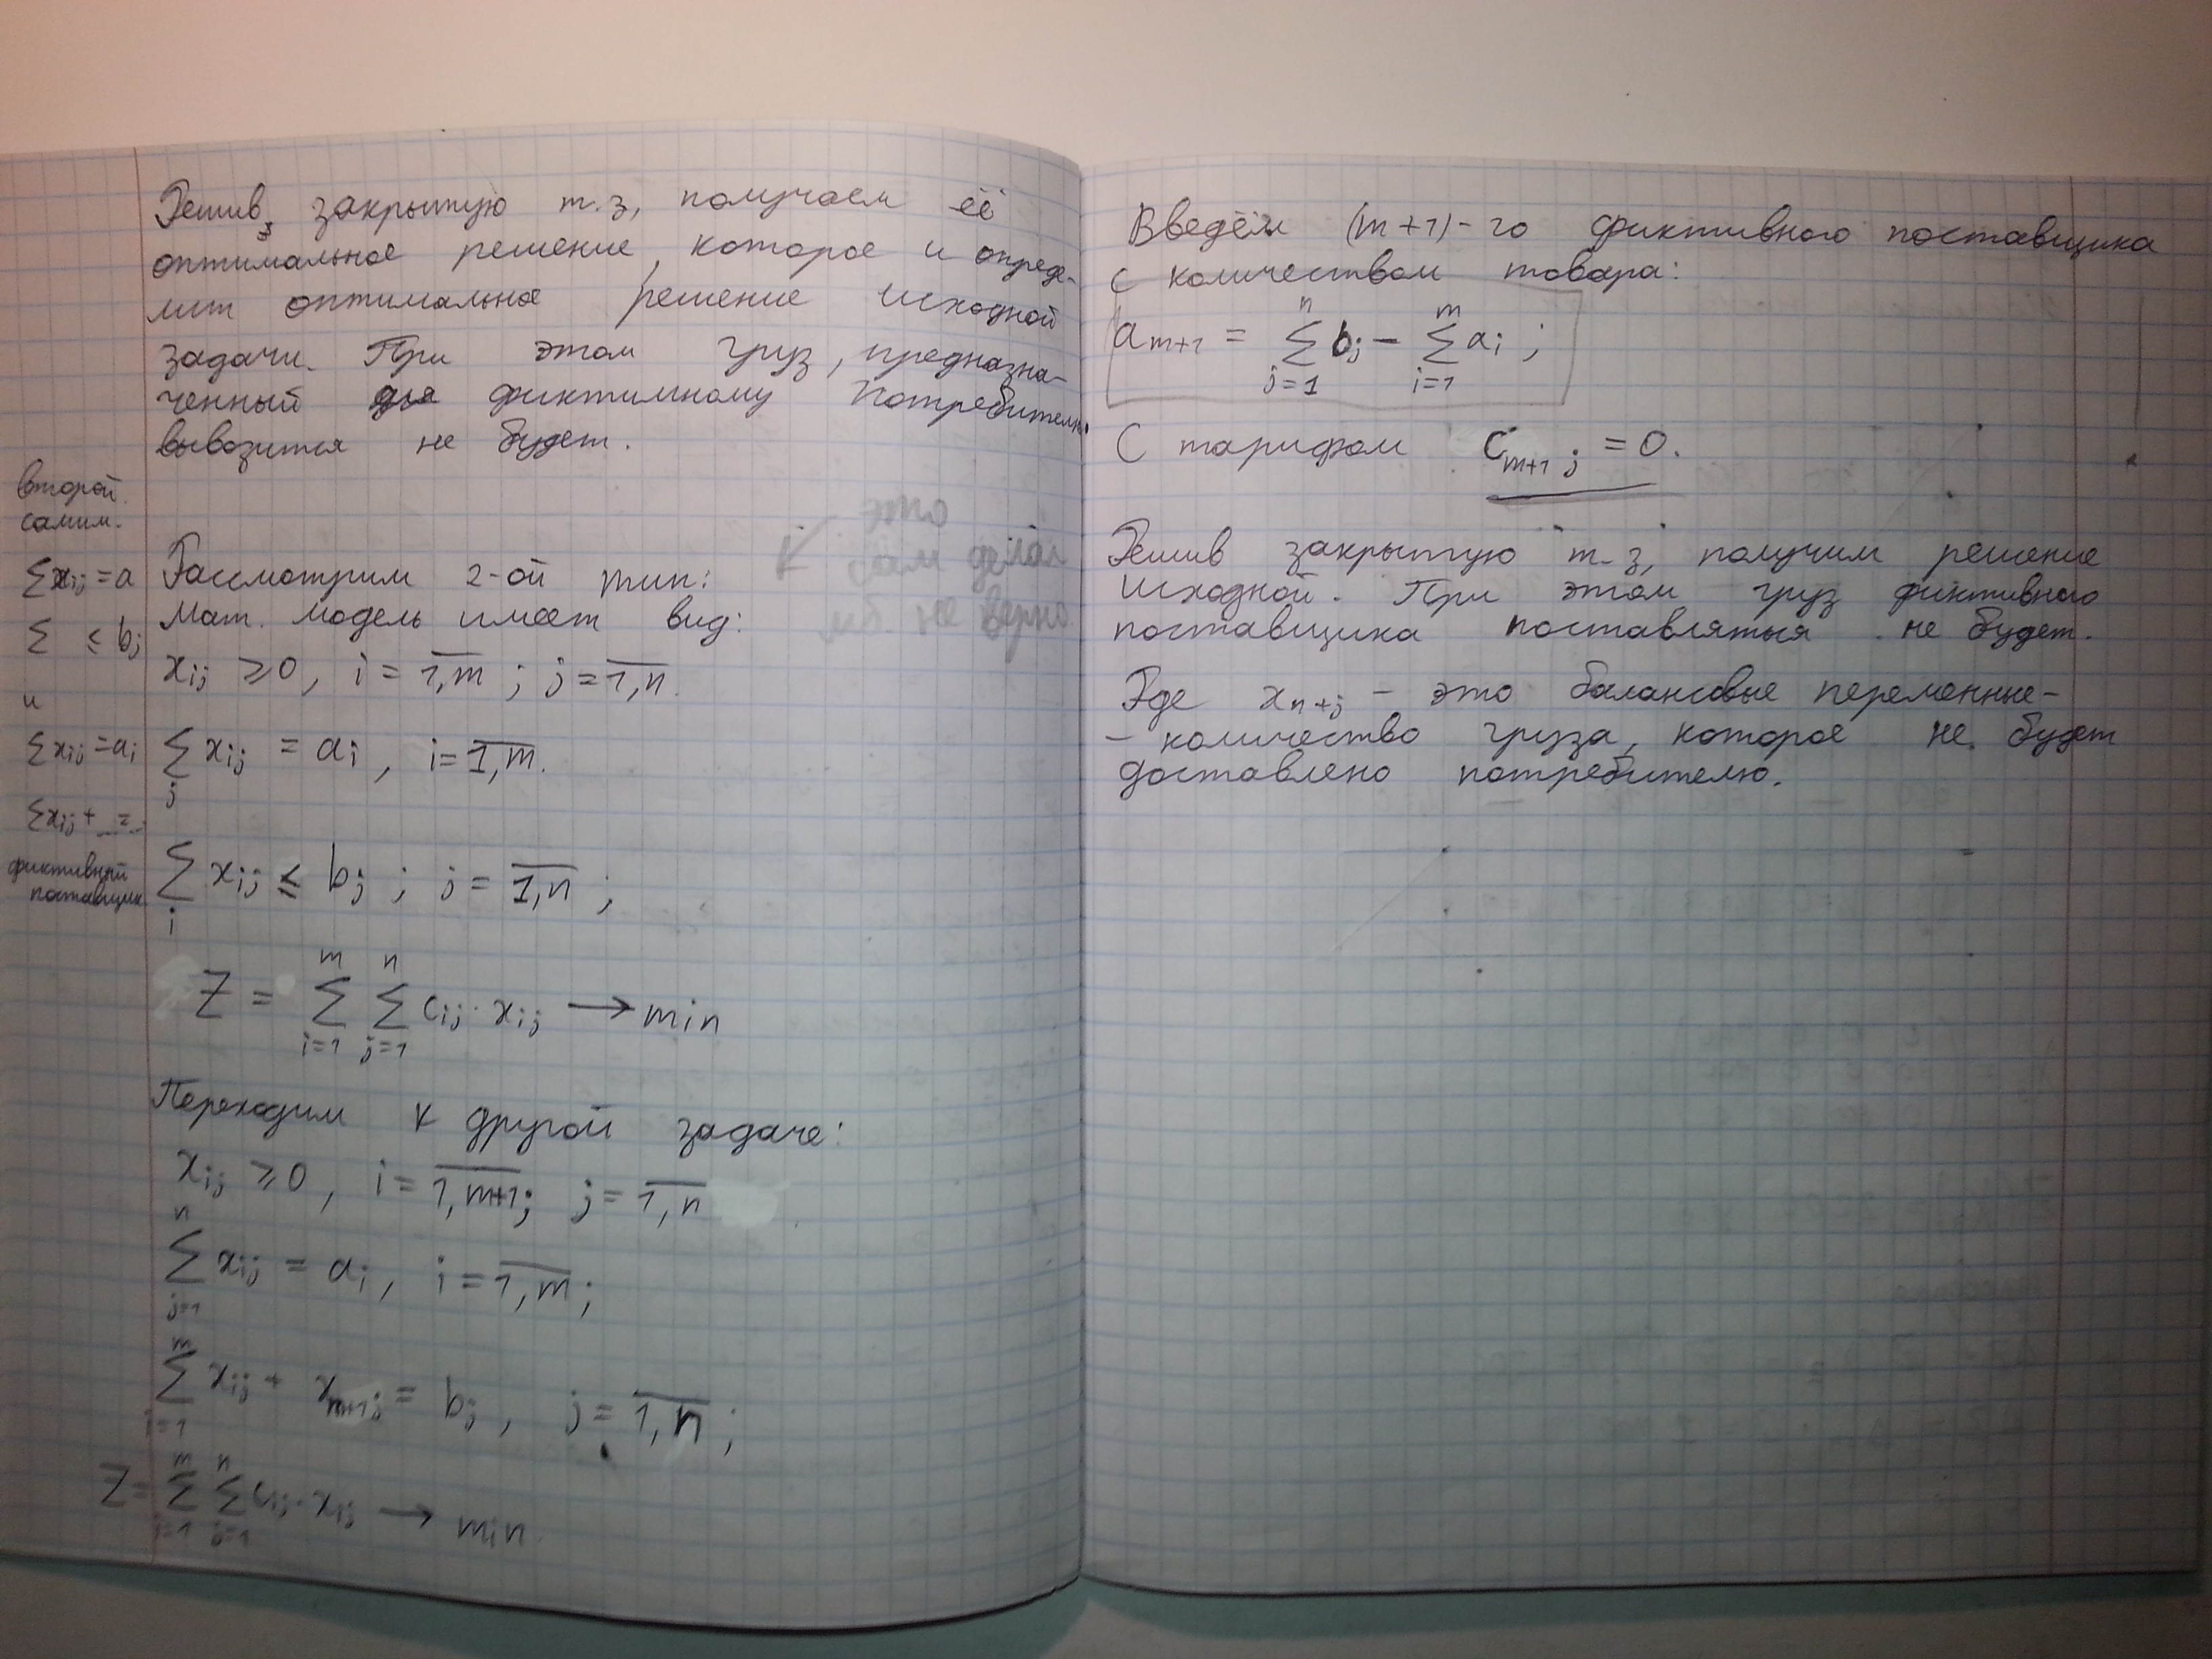 Решив закрытую т.з, получаем её
оптимальное решение, которое и опреде-
лит оптимальное решение исходной
задачи. При этом груз, предназна-
ченный для фиктимному потребителю
вывозится не будет.
второй
самим.
Σxij = a
Σ ≤ bj
и
Σxij = ai
Σxij + _ = _
фиктивный
поставщик
это
сам делал
мб. не верно
Рассмотрим 2-ой тип:
Мат. модель имеет вид:
xij ≥ 0, i = 1,m ; j = 1,n.
Σ xij = ai , i = 1,m.
j
Σ xij ≤ bj ; j = 1,n ;
i
m n
Z = Σ Σ cij · xij → min
i=1 j=1
Переходим к другой задаче:
xij ≥ 0, i = 1,m+1; j = 1,n
n
Σ xij = ai, i = 1,m;
j=1
m
Σ xij + xm+1j = bj, j = 1,n;
i=1
m n
Z = Σ Σ cij · xij → min.
i=1 j=1
Введём (m+1)-го фиктивного поставщика
с количеством товара:
n m
am+1 = Σ bj - Σ ai ;
j=1 i=1
С тарифом cm+1 j = 0.
Решив закрытую т.з, получим решение
исходной. При этом груз фиктивного
поставщика поставляться не будет.
Где xn+j - это балансовые переменные-
- количество груза, которое не будет
доставлено потребителю.